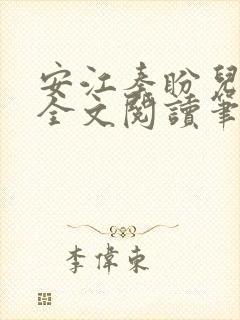 安江秦盼兒
全文閱讀筆
李偉東